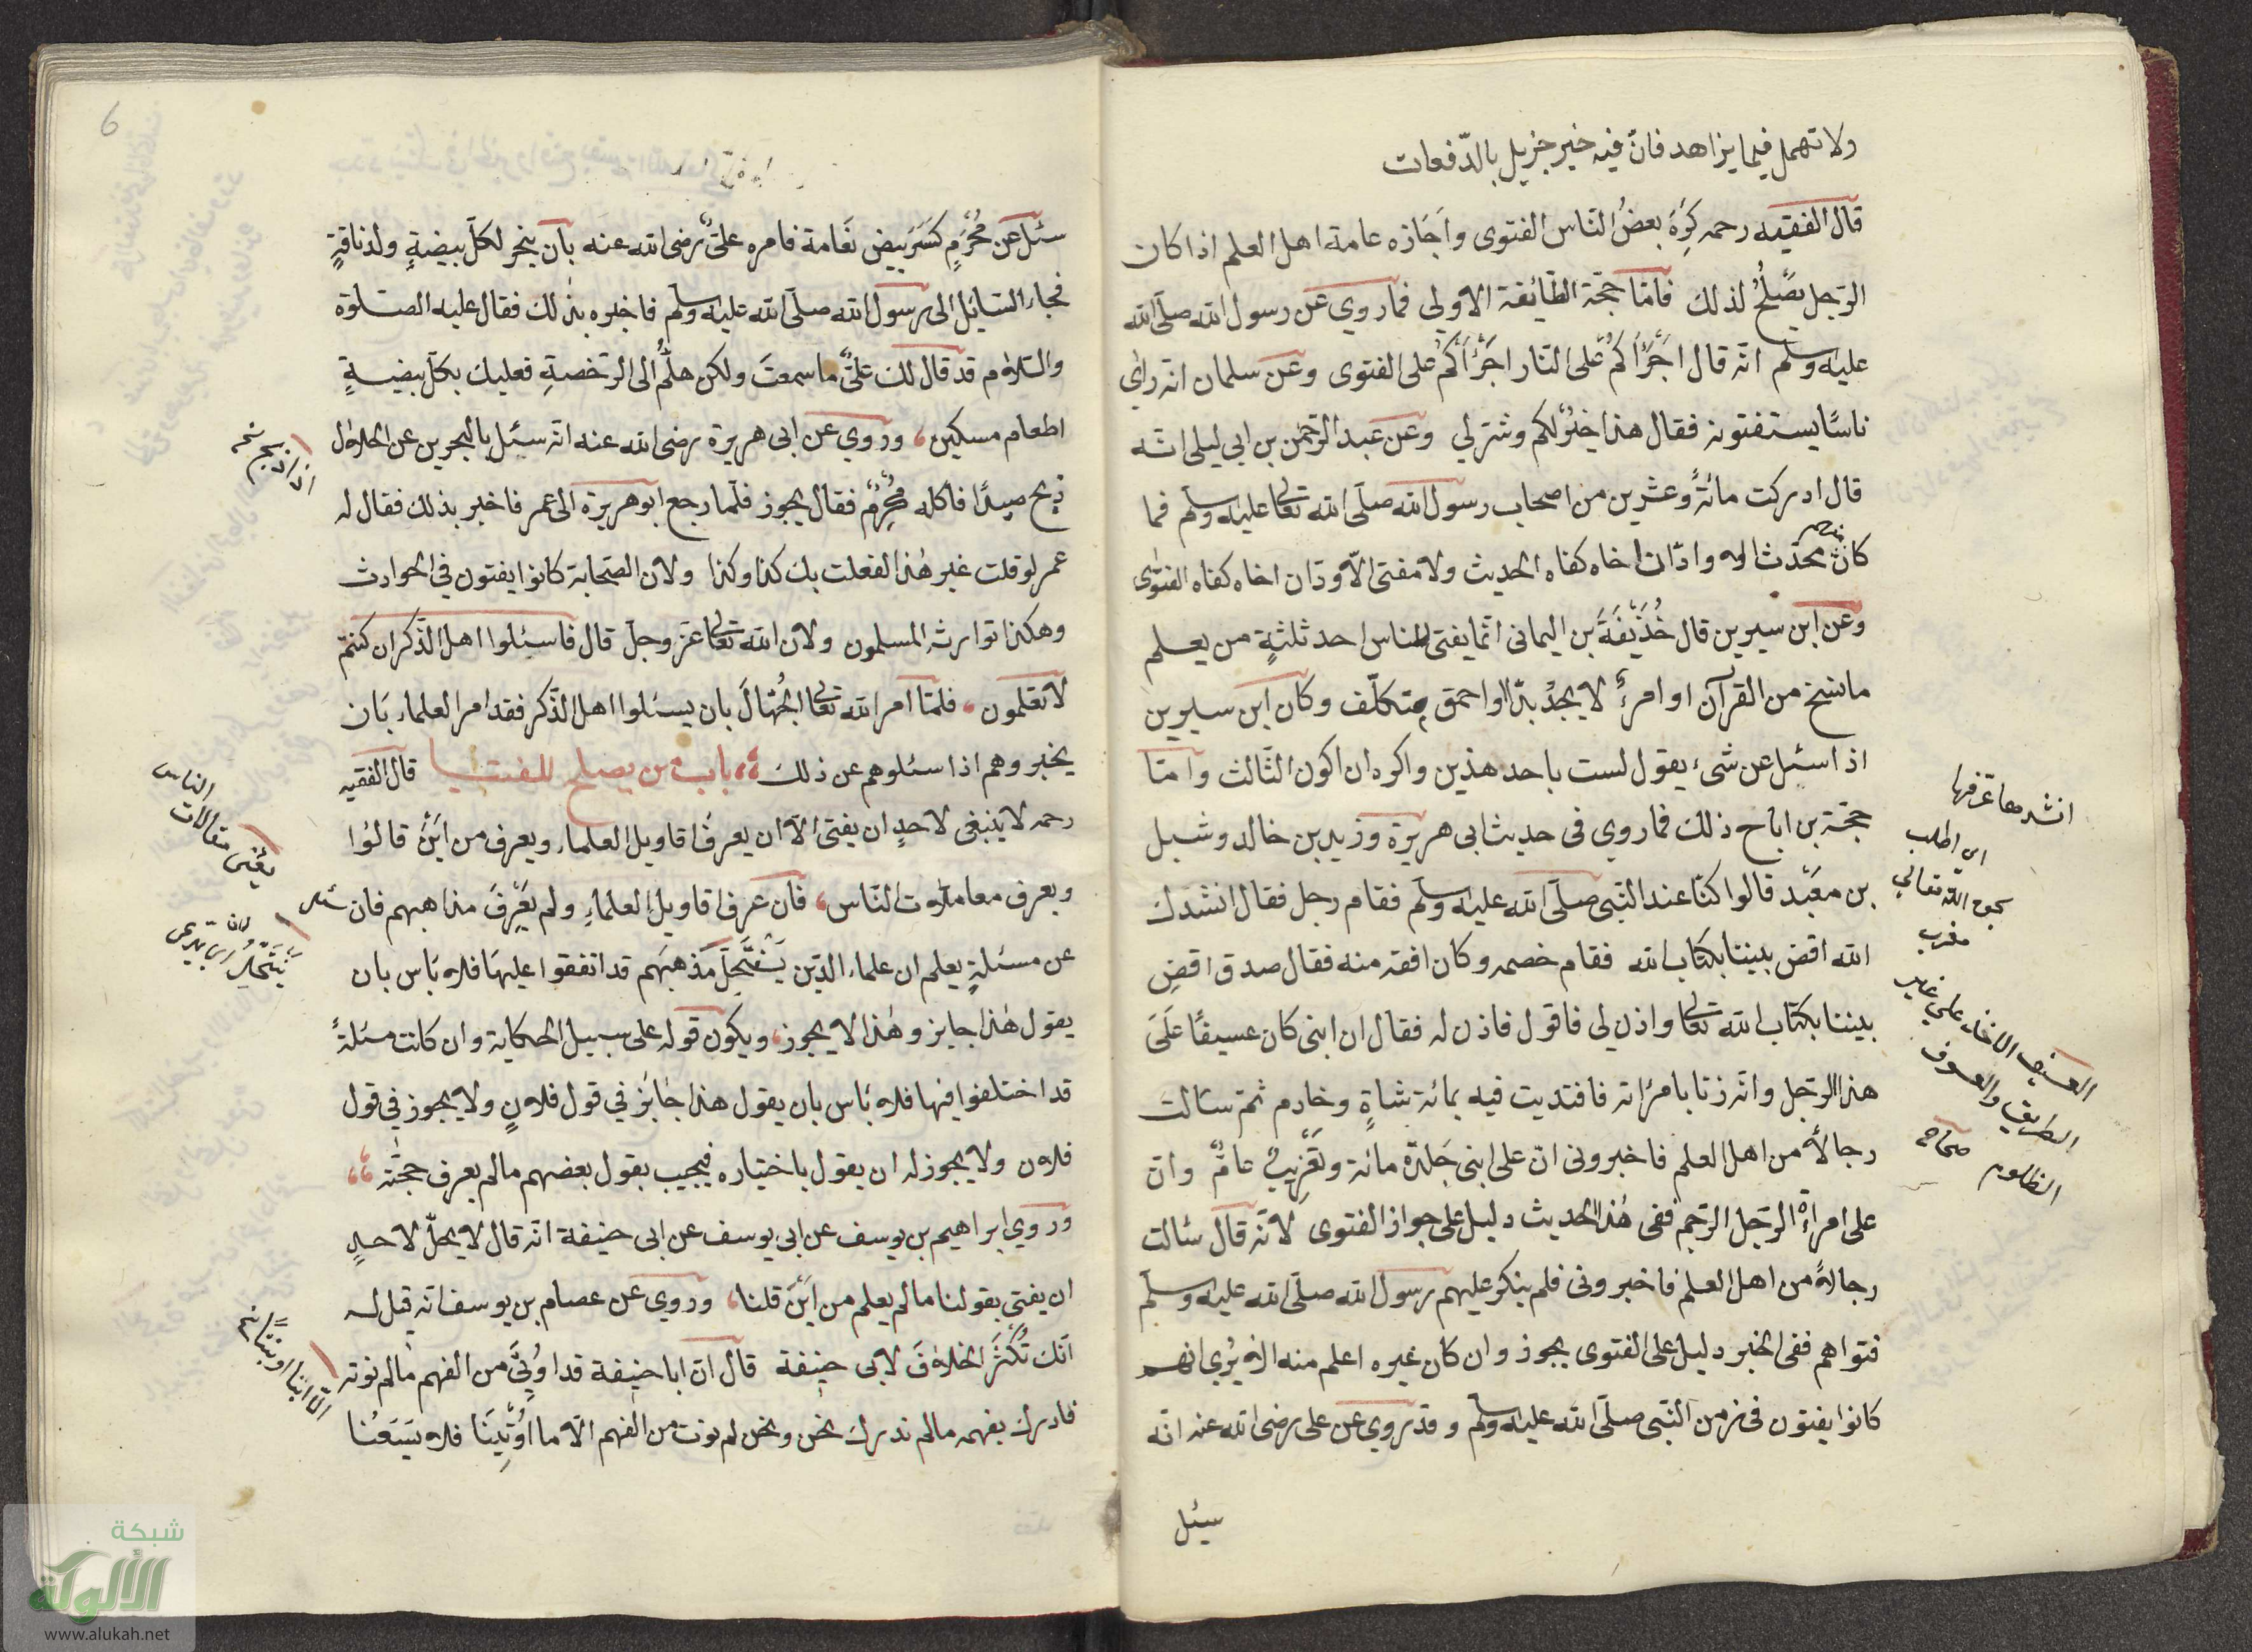 ولا تهمل فيما يزاهد فانّ فيه خير جزيل بالدّفعات
قال الفقيه رحمه كَرِهَ بعضُ النّاس الفتوى واَجَازه عامة اهل العلم اذا كان
الرّجل يصْلُحُ لذلك فامّا حجّة الطّائفة الاولى فما روي عن رسول الله صلّى الله
عليه وسلم انّه قال اَجْرَأُكم على النّار اجْرَأُكم على الفتوى وعن سلمان انه رأى
ناسًا يستفتونه فقال هذا خيْرٌ لكم وشرّ لي وعن عبد الرّحمن بن ابي ليلى انّه
قال ادركت مائةً وعشرين من اصحاب رسول الله صلّى الله تعالى عليه وسلم فما
كان محدّث الا وادّ ان اخاه كفاه الحديث ولا مفتى الّا ودّ ان اخاه كفاه الفتوى
وعن ابن سيرين قال حُذَيْفَةَ بن اليمانى انّما يفتى للناس احد ثلثةٍ من يعلم
ما نسخ من القرآن او امرءٌ لا يجدُ بدّا او احمق متكلّف وكان ابن سيرين
اذا سئل عن شىء يقول لست باحد هذين واكره ان اكون الثّالث وامّا
حجّة من اباح ذلك فما روي فى حديث ابى هريرة وزيد بن خالد وشبل
بن معْبَد قالوا كنّا عند النّبى صلّى الله عليه وسلم فقام رجل فقال انشدك
الله اقض بيننا بكتاب الله فقام خصمه وكان افقه منه فقال صدق اقضِ
بيننا بكتاب الله تعالى واذن لي فاقول فاذن له فقال ان ابنى كان عسيفًا عَلَى
هذا الرّجل وانّه زنا بامرأته فافتديت فيه بمائة شاةٍ وخادم ثمّ سألت
رجالًا من اهل العلم فاخبرونى انّ على ابنى جَلدة مائة وتَغْرِيبُ عامٍ وانّ
على امرأة الرّجل الرّجم ففى هٰذا الحديث دليل على جواز الفتوى لانّه قال سألت
رجالًا من اهل العلم فاخبرونى فلم ينكر عليهم رسول الله صلّى الله عليه وسلّم
فتواهم ففى الخبر دليل على الفتوى يجوز وان كان غيره اعلم منه الا يُرى انهم
كانوا يفتون فى زمن النّبى صلّى الله عليه وسلم وقد روي عن على رضى الله عنه انّه
سئل
انشدها عرّفها
اى اطلب
بحق الله تعالى
مغرب
العسيف الاخذ على غير
الطريق والعسوف
الظلوم صحاح
6
سئل عن مُحْرِمٍ كسَرَ بيض نَعَامة فامره علىٌّ رضى الله عنه بان ينحر لكلّ بيضةٍ ولد ناقةٍ
فجاء السّائل الى رسول الله صلّى الله عليه وسلم فاخبره بذلك فقال عليه الصّلوة
والسّلام قد قال لك علىٌّ ما سمعتَ ولكن هلُمَّ الى الرّخصةِ فعليك بكلّ بيضةٍ
اطعام مسكين وروي عن ابى هريرة رضى الله عنه انّه سئل بالبحرين عن الحلال
ذبح صيدًا فاكله مُحْرِمٌ فقال يجوز فلمّا رجع ابو هريرة الى عمر فاخبر بذلك فقال له
عمر لو قلت غير هٰذا لفعلت بك كذا وكذا ولانّ الصّحابة كانوا يفتون فى الحوادث
وهكذا توارث المسلمون ولان الله تعالى عزّ وجلّ قال فاسئلوا اهل الذّكر ان كنتم
لا تعلمون فلمّا امر الله تعالى الجُهّالَ بان يسئلوا اهل الذّكر فقد امر العلماء بَان
يخبروهم اذا سئلوهم عن ذلك باب من يصلح للفتيا قال الفقيه
رحمه لا ينبغى لاحدٍ ان يفتى الّا ان يعرفَ اقاويل العلماء ويعرف من اَيْنَ قالُوا
ويعرف معاملات النّاس فان عرف اقاويل العلماءِ ولم يَعْرِفْ مذاهبهم فان سئل
عن مسئلةٍ يعلم ان علماء الدّين يَنْتَحِلُ مَذهبَهم قد اتفقوا عليهَا فلا بَاس بان
يقول هٰذا جايز وهٰذا لا يجوز ويكون قوله على سبيل الحكاية وان كانت مسئلةً
قد اختلفوا فيها فلا بَاس بان يقول هذا جائز فى قول فلانٍ ولا يجوز فى قول
فلان ولا يجوز له ان يقول باختياره فيجيب بقول بعضهم ما لم يعرف حجتّه
وروي ابراهيم بن يوسف عن ابى يوسف عن ابى حنيفة انّه قال لا يحلّ لاحدٍ
ان يفتى بقولنا ما لم يعلم من اَيْنَ قلنا وروي عن عصام بن يوسف انّه قيل له
انّك تُكْثِرَ الخلافَ لابى حنيفة قال انّ ابا حنيفة قد اُوتِىَ من الفهم ما لم نوته
فادرك بفهمه ما لم ندرك نحن ونحن لم نوت من الفهم الّا ما اُوتِينَا فلا يَسَعُنا
يعْنى مقالات
الناس
شبكة
الألوكة
www.alukah.net